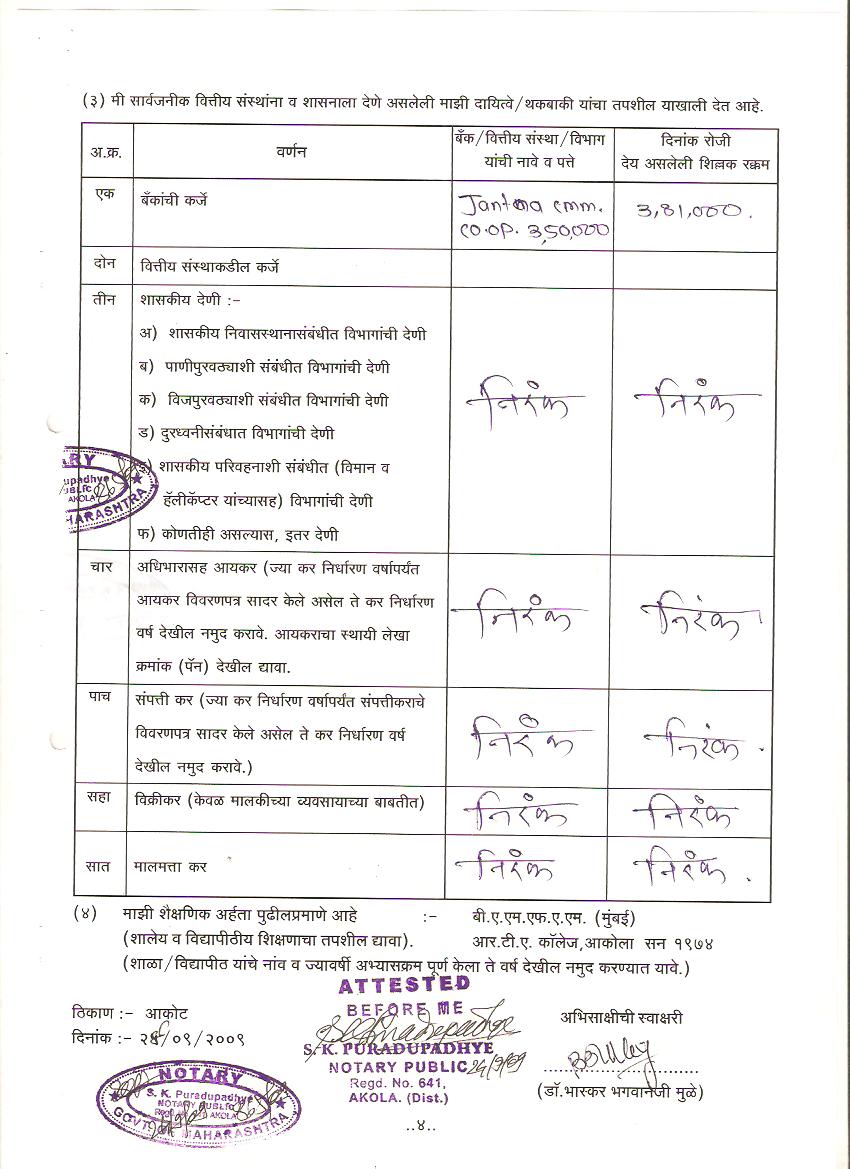 (३) मी सार्वजनीक वित्तीय संस्थांना व शासनाला देणे असलेली माझी दायित्वे/थकबाकी यांचा तपशील याखाली देत आहे.
अ.क्र. वर्णन बँक/वित्तीय संस्था/विभाग यांची नावे व पत्ते दिनांक रोजी देय असलेली शिल्लक रक्कम
एक बँकांची कर्जे Jantma comm. 3,81,000.
CO.OP. 3,50,000
दोन वित्तीय संस्थाकडील कर्जे
तीन शासकीय देणी :-
अ) शासकीय निवासस्थानासंबंधीत विभागांची देणी
ब) पाणीपुरवठ्याशी संबंधीत विभागांची देणी
क) विजपुरवठ्याशी संबंधीत विभागांची देणी निरंक निरंक
ड) दुरध्वनीसंबधात विभागांची देणी
शासकीय परिवहनाशी संबंधीत (विमान व
हॅलीकॅप्टर यांच्यासह) विभागांची देणी
फ) कोणतीही असल्यास, इतर देणी
चार अधिभारासह आयकर (ज्या कर निर्धारण वर्षापर्यंत
आयकर विवरणपत्र सादर केले असेल ते कर निर्धारण निरंक निरंक
वर्ष देखील नमुद करावे. आयकराचा स्थायी लेखा
क्रमांक (पॅन) देखील द्यावा.
पाच संपत्ती कर (ज्या कर निर्धारण वर्षापर्यंत संपत्तीकराचे
विवरणपत्र सादर केले असेल ते कर निर्धारण वर्ष निरंक निरंक.
देखील नमुद करावे.)
सहा विक्रीकर (केवळ मालकीच्या व्यवसायाच्या बाबतीत) निरंक निरंक
सात मालमत्ता कर निरंक निरंक.
(४) माझी शैक्षणिक अर्हता पुढीलप्रमाणे आहे :- बी.ए.एम.एफ.ए.एम. (मुंबई)
(शालेय व विद्यापीठीय शिक्षणाचा तपशील द्यावा). आर.टी.ए. कॉलेज,आकोला सन १९७४
(शाळा/विद्यापीठ यांचे नांव व ज्यावर्षी अभ्यासक्रम पूर्ण केला ते वर्ष देखील नमुद करण्यात यावे.)
ATTESTED
ठिकाण :- आकोट BEFORE ME अभिसाक्षीची स्वाक्षरी
दिनांक :- /०९/२००९
S. K. PURADUPADHYE
NOTARY PUBLIC 24/9/09
Regd. No. 641,
AKOLA. (Dist.) (डॉ.भास्कर भगवानजी मुळे)
NOTARY
S. K. Puradupadhye
NOTARY PUBLIC
AKOLA
GOVT. MAHARASHTRA
..४..
ARY
upadhye
UBLIC
AKOLA
HARASHTRA